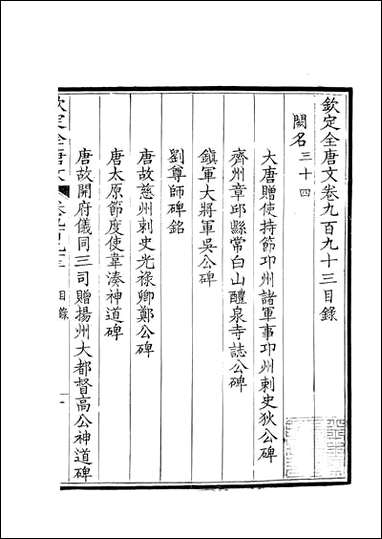 欽定全唐文卷九百九十三目錄
闕名三十四
大唐贈使持節邛州諸軍事邛州刺史狄公碑
齊州章邱縣常白山醴泉寺誌公碑
鎮軍大將軍吳公碑
劉尊師碑銘
唐故慈州刺史光祿卿鄭公碑
唐太原節度使韋湊神道碑
唐故開府儀同三司贈揚州大都督高公神道碑
欽定全唐文 卷九百九十三 目錄 一